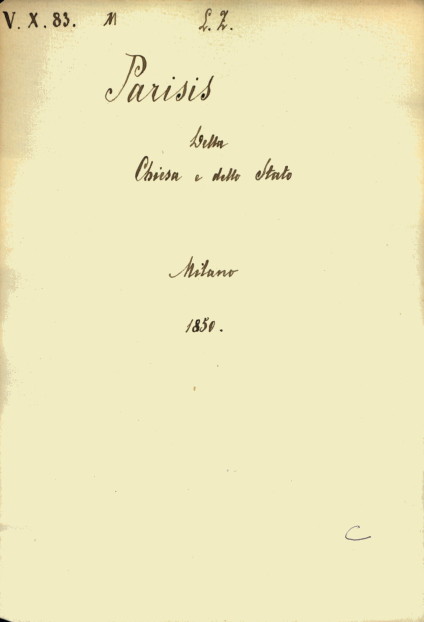 V. X. 83. M L. Z.
Parisis
Della
Chiesa e dello Stato
Milano
1850.
C